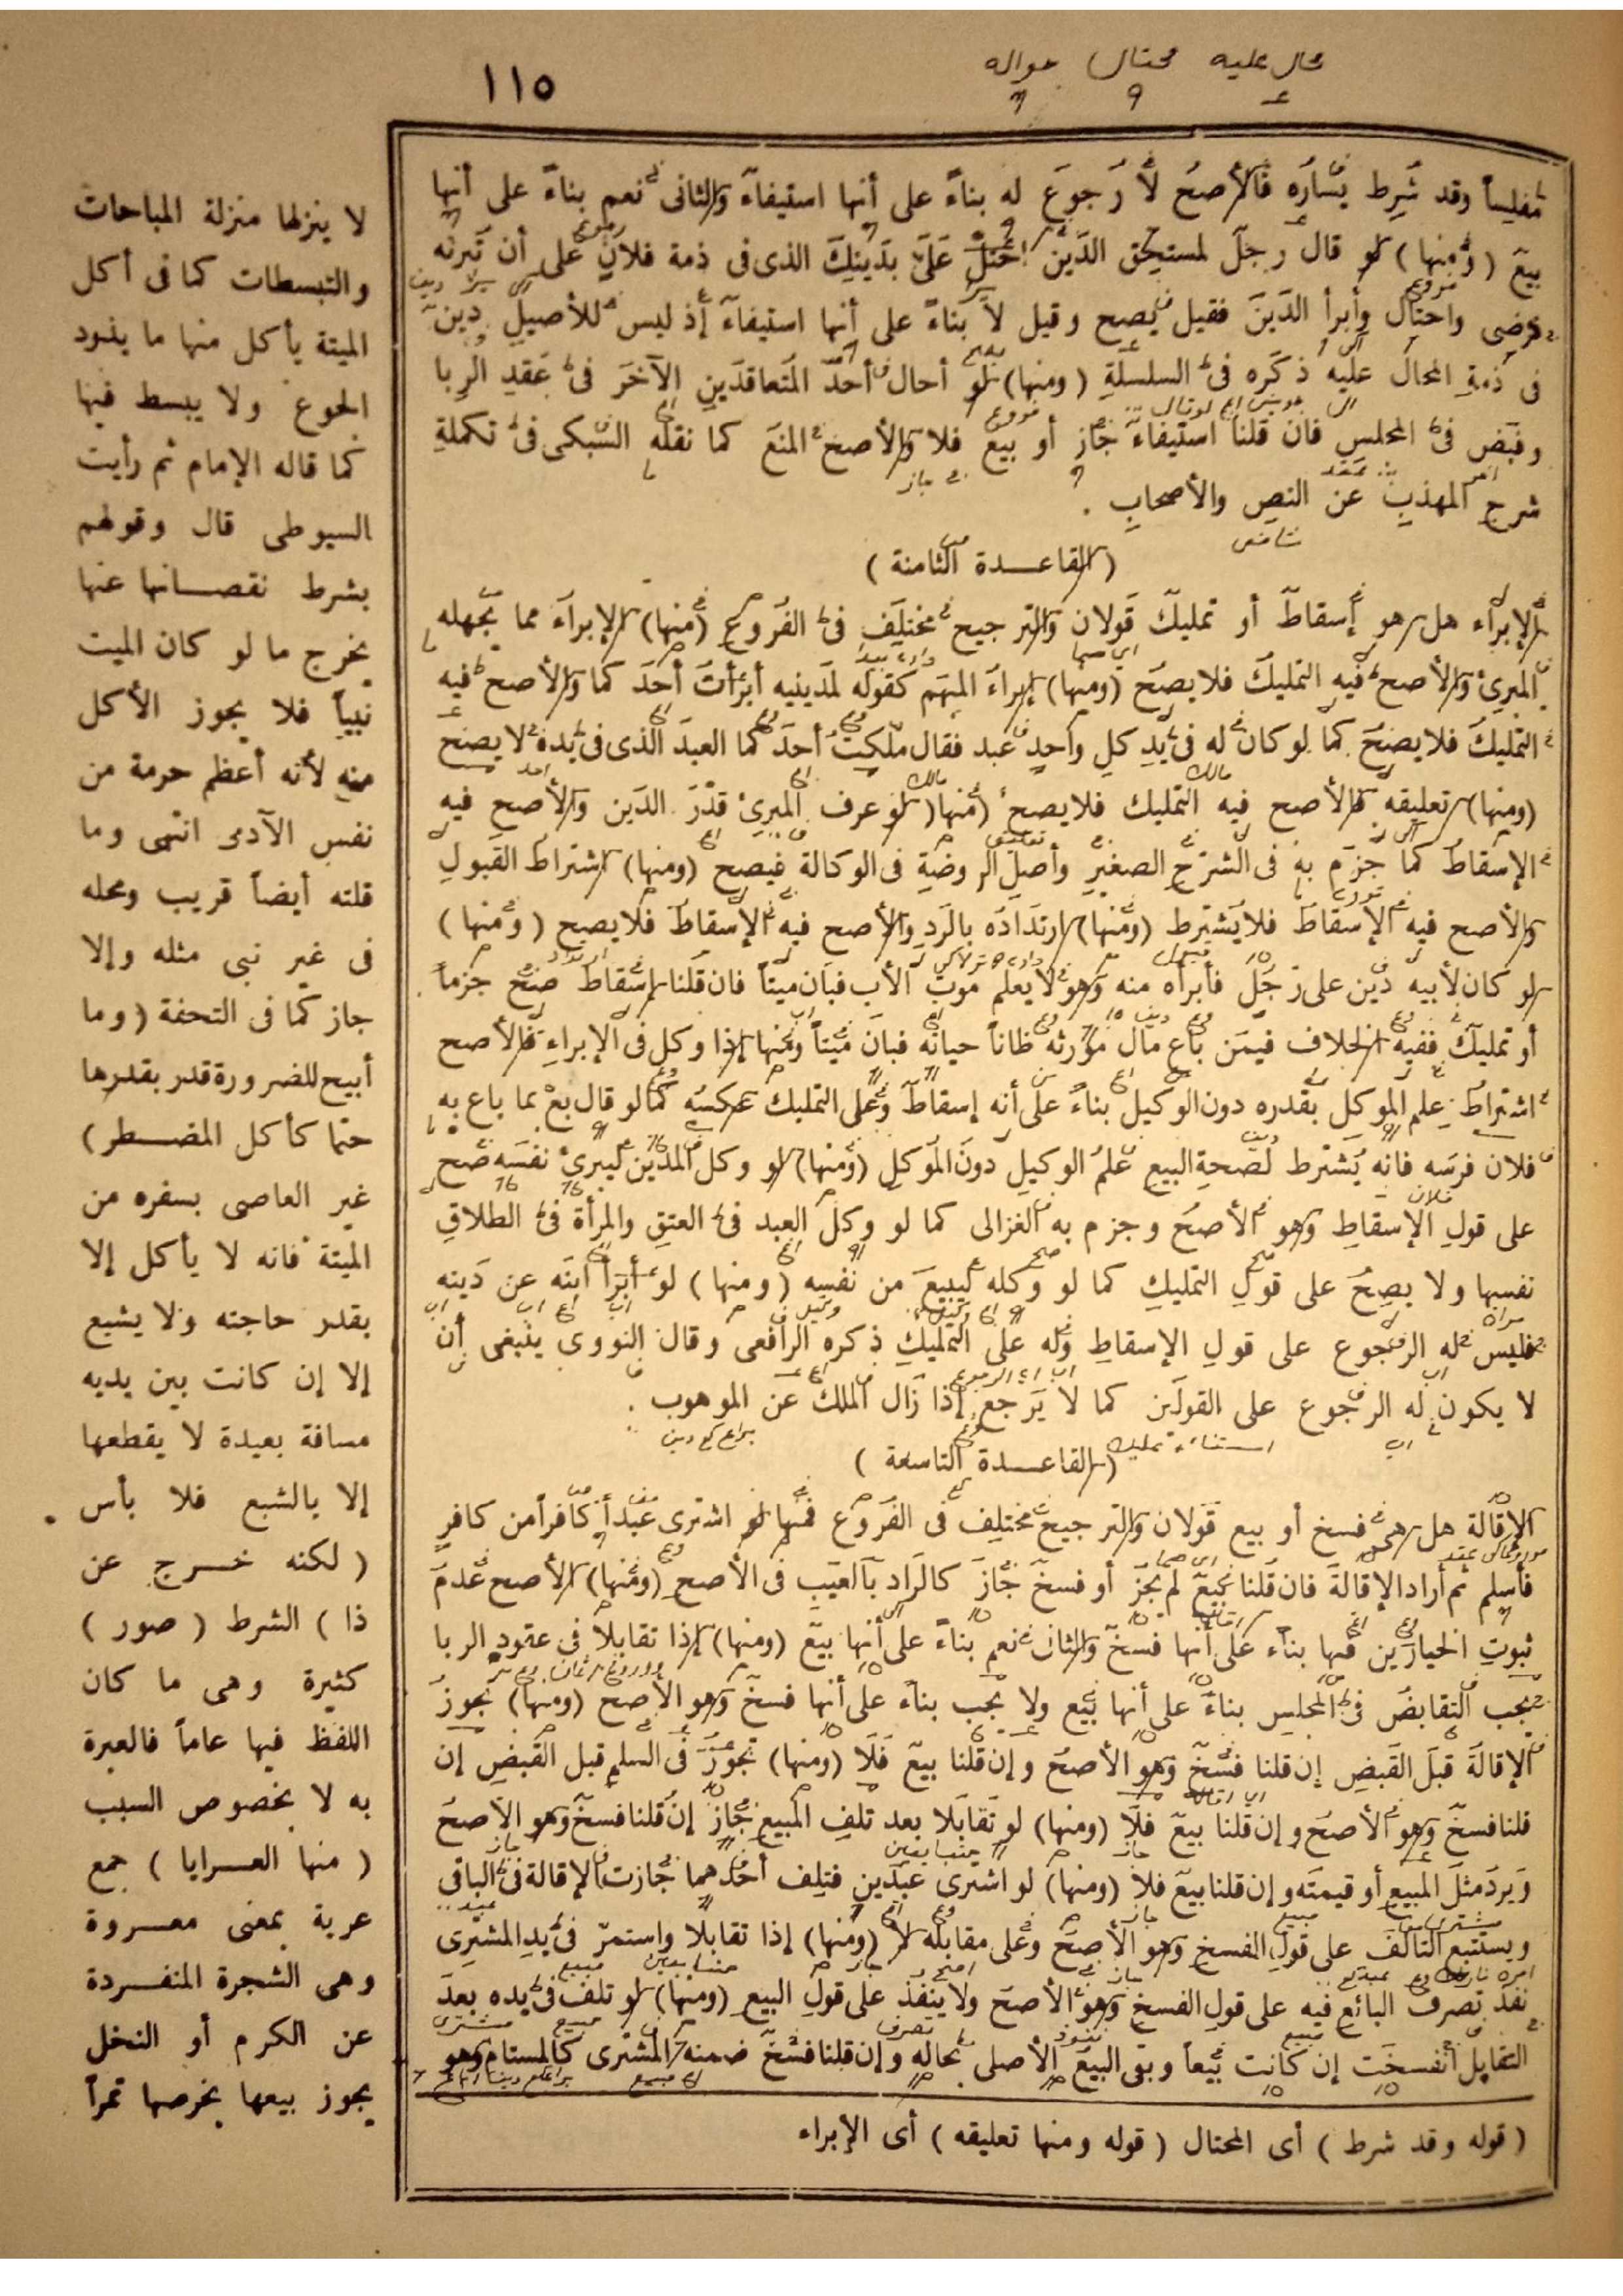 محال عليه محتال حواله
١١٥
مفلساً وقد شرط يساره فالأصح لا رجوع له بناءً على أنها استيفاء والثانى نعم بناءً على أنها
بيع (ومنها) لو قال رجل لمستحق الدين احتل علىّ بدينك الذى فى ذمة فلان على أن تبرئه
فرضى واحتال وأبرأ الدين فقيل يصح وقيل لا بناءً على أنها استيفاء إذ ليس للأصيل دين
فى ذمة المحال عليه ذكره فى السلسلة (ومنها) لو أحال أحد المتعاقدين الآخر فى عقد الربا
وقبض فى المجلس فان قلنا استيفاء جاز أو بيع فلا والأصح المنع كما نقله السبكى فى تكملة
شرح المهذب عن النص والأصحاب .
(القاعدة الثامنة)
الإبراء هل هو إسقاط أو تمليك قولان والترجيح مختلف فى الفروع (منها) الإبراء مما يجهله
المبرئ والأصح فيه التمليك فلا يصح (ومنها) إبراء المبهم كقوله لمدينيه أبرأت أحدكما والأصح فيه
التمليك فلا يصح كما لو كان له فى يد كل واحد عبد فقال ملكت أحدكما العبد الذى فى يده لا يصح
(ومنها) تعليقه فالأصح فيه التمليك فلا يصح (منها) لو عرف المبرئ قدر الدين والأصح فيه
الإسقاط كما جزم به فى الشرح الصغير وأصل الروضة فى الوكالة فيصح (ومنها) اشتراط القبول
والأصح فيه الإسقاط فلا يشترط (ومنها) ارتداده بالرد والأصح فيه الإسقاط فلا يصح (ومنها)
لو كان لأبيه دين على رجل فأبرأه منه وهو لا يعلم موت الأب فبان ميتاً فان قلنا إسقاط صح جزماً
أو تمليك ففيه الخلاف فيمن باع مال مورثه ظاناً حياته فبان ميتاً ومنها إذا وكل فى الإبراء فالأصح
اشتراط علم الموكل بقدره دون الوكيل بناءً على أنه إسقاط وعلى التمليك عكسه كما لو قال بع بما باع به
فلان فرسه فانه يشترط لصحة البيع علم الوكيل دون الموكل (ومنها) لو وكل المدين ليبرئ نفسه صح
على قول الإسقاط وهو الأصح وجزم به الغزالى كما لو وكل العبد فى العتق والمرأة فى الطلاق
نفسها ولا يصح على قول التمليك كما لو وكله ليبيع من نفسه (ومنها) لو أبرأ ابنه عن دينه
فليس له الرجوع على قول الإسقاط وله على التمليك ذكره الرافعى وقال النووى ينبغى أن
لا يكون له الرجوع على القولين كما لا يرجع إذا زال الملك عن الموهوب .
(القاعدة التاسعة)
الإقالة هل هى فسخ أو بيع قولان والترجيح مختلف فى الفروع فمنها لو اشترى عبداً كافراً من كافر
فأسلم ثم أراد الإقالة فان قلنا بيع لم يجز أو فسخ جاز كالراد بالعيب فى الأصح (ومنها) الأصح عدم
ثبوت الخيارين فيها بناء على أنها فسخ والثانى نعم بناءً على أنها بيع (ومنها) إذا تقابلا فى عقود الربا
يجب التقابض فى المجلس بناءً على أنها بيع ولا يجب بناءً على أنها فسخ وهو الأصح (ومنها) تجوز
الإقالة قبل القبض إن قلنا فسخ وهو الأصح وإن قلنا بيع فلا (ومنها) تجوز فى السلم قبل القبض إن
قلنا فسخ وهو الأصح وإن قلنا بيع فلا (ومنها) لو تقابلا بعد تلف المبيع جاز إن قلنا فسخ وهو الأصح
ويرد مثل المبيع أو قيمته وإن قلنا بيع فلا (ومنها) لو اشترى عبدين فتلف أحدهما جازت الإقالة فى الباقى
ويستتبع التالف على قول الفسخ وهو الأصح وعلى مقابله لا (ومنها) إذا تقابلا واستمر فى يد المشترى
نفذ تصرف البائع فيه على قول الفسخ وهو الأصح ولا ينفذ على قول البيع (ومنها) لو تلف فى يده بعد
التقابل انفسخت إن كانت بيعاً وبقى البيع الأصلى بحاله وإن قلنا فسخ ضمنه المشترى كالمستام وهو
(قوله وقد شرط) أى المحتال (قوله ومنها تعليقه) أى الإبراء
لا ينزلها منزلة المباحات
والتبسطات كما فى أكل
الميتة يأكل منها ما يذود
الجوع ولا يبسط فيها
كما قاله الإمام ثم رأيت
السيوطى قال وقولهم
بشرط نقصانها عنها
يخرج ما لو كان الميت
نبياً فلا يجوز الأكل
منه لأنه أعظم حرمة من
نفس الآدمى انتهى وما
قلته أيضاً قريب ومحله
فى غير نبى مثله وإلا
جاز كما فى التحفة (وما
أبيح للضرورة قدر بقدرها
حتما كأكل المضطر)
غير العاصى بسفره من
الميتة فانه لا يأكل إلا
بقدر حاجته ولا يشبع
إلا إن كانت بين يديه
مسافة بعيدة لا يقطعها
إلا بالشبع فلا بأس
(لكنه خرج عن
ذا) الشرط (صور)
كثيرة وهى ما كان
اللفظ فيها عاماً فالعبرة
به لا بخصوص السبب
(منها العرايا) جمع
عرية بمعنى معروة
وهى الشجرة المنفردة
عن الكرم أو النخل
يجوز بيعها بخرصها تمراً